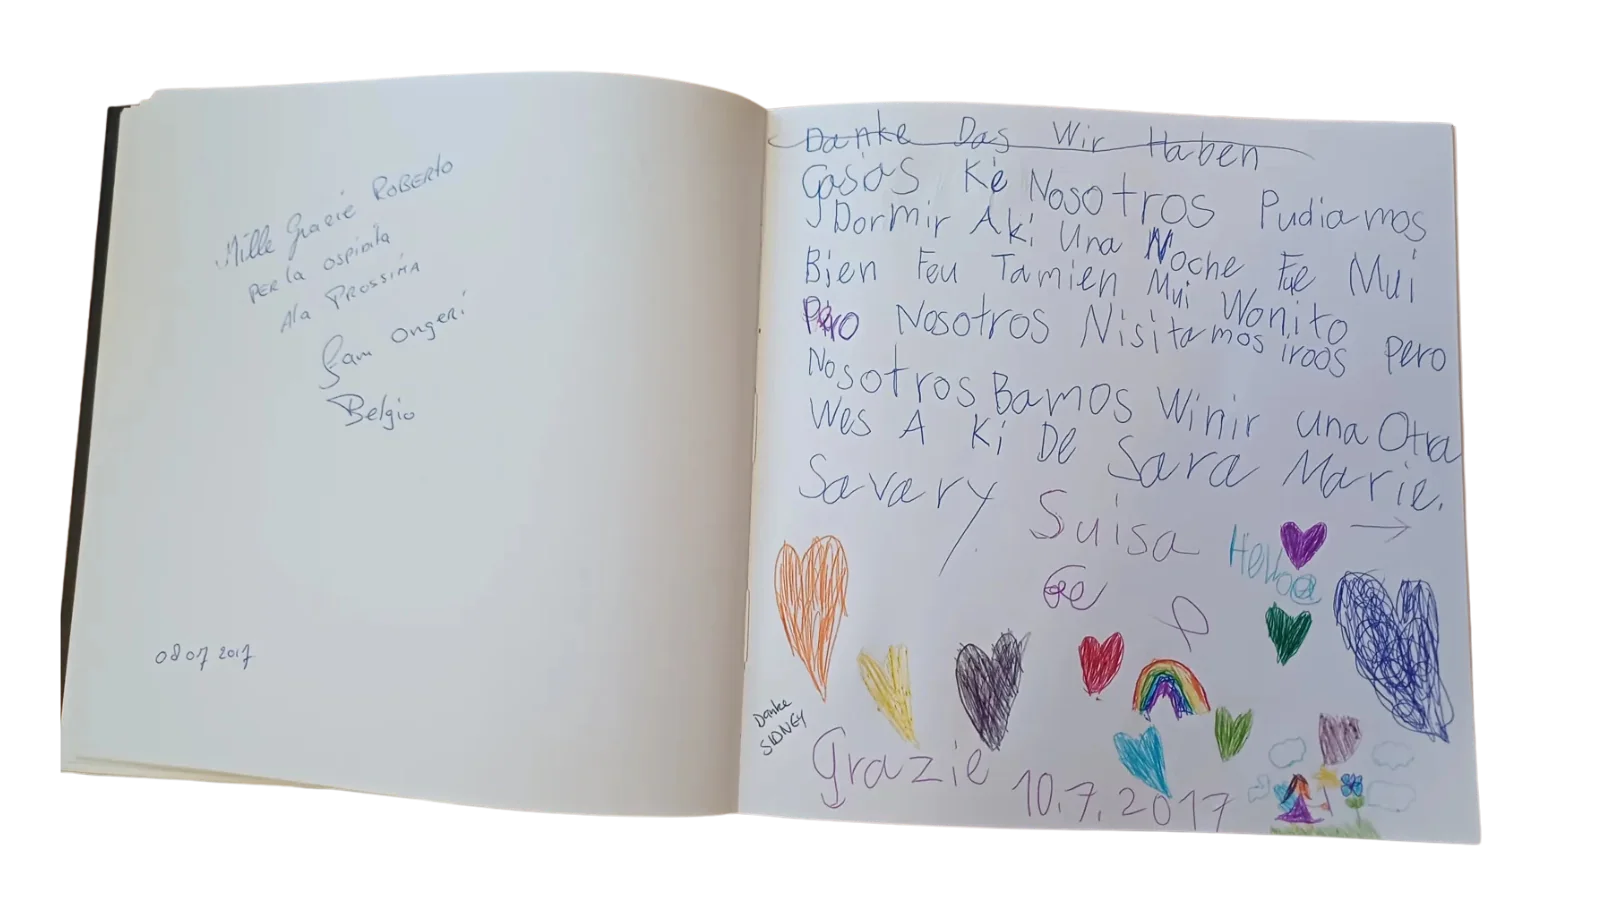 Mille Grazie ROBERTO
PER la OSPidita
Ala PROSSIMA
Sam Ongeri
Belgio
08 07 2017
Danke Das Wir Haben
Gasias Ke Nosotros Pudiamos
Dormir Aki Una Noche Fue Mui
Bien Feu Tamien Mui Wonito
Pero Nosotros Nisitamos iroos Pero
Nosotros Bamos Winir una Otra
Wes A Ki De Sara Marie.
Savary Suisa
Danke
SIDNEY
Grazie 10.7.2017